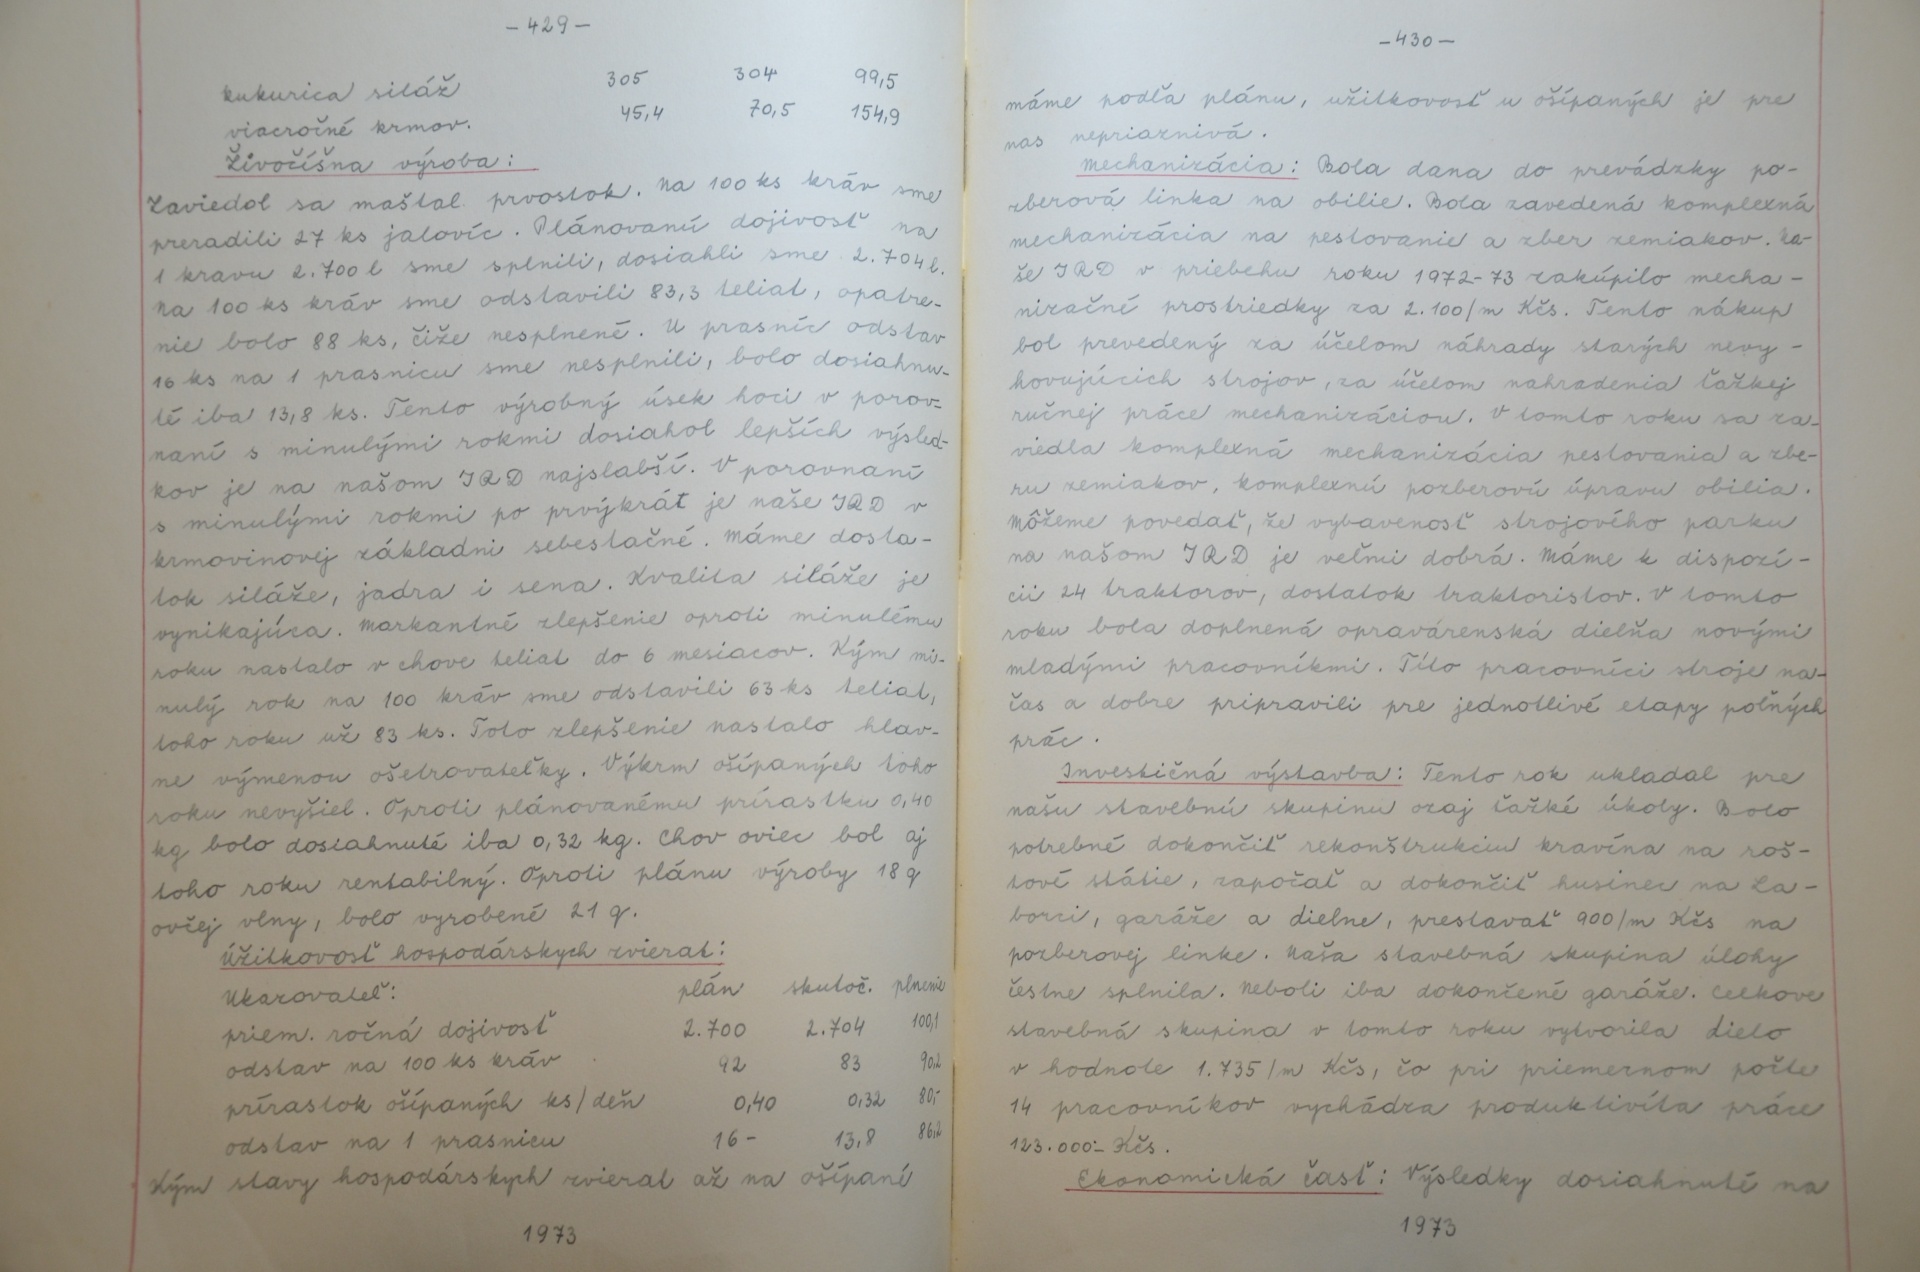 -429-
kukurica siláž 305 304 99,5
viacročné krmov. 45,4 70,5 154,9
Živočíšna výroba:
Zaviedol sa maštal prvostok. Na 100 ks kráv sme
preradili 27 ks jalovíc. Plánovanú dojivosť na
1 kravu 2.700 l sme splnili, dosiahli sme 2.704 l.
Na 100 ks kráv sme odstavili 83,3 teliat, opatre-
nie bolo 88 ks, čiže nesplnené. U prasníc odstav
16 ks na 1 prasnicu sme nesplnili, bolo dosiahnu-
té iba 13,8 ks. Tento výrobný úsek hoci v porov-
naní s minulými rokmi dosiahol lepších výsled-
kov je na našom JRD najslabší. V porovnaní
s minulými rokmi po prvýkrát je naše JRD v
krmovinovej základni sebestačné. Máme dosta-
tok siláže, jadra i sena. Kvalita siláže je
vynikajúca. Markantné zlepšenie oproti minulému
roku nastalo v chove teliat do 6 mesiacov. Kým mi-
nulý rok na 100 kráv sme odstavili 63 ks teliat,
toho roku už 83 ks. Toto zlepšenie nastalo hlav-
ne výmenou ošetrovateľky. Výkrm ošípaných toho
roku nevyšiel. Oproti plánovanému prírastku 0,40
kg bolo dosiahnuté iba 0,32 kg. Chov oviec bol aj
toho roku rentabilný. Oproti plánu výroby 18 q
ovčej vlny, bolo vyrobené 21 q.
Úžitkovosť hospodárskych zvierat:
Ukazovateľ: plán skutoč. plnenie
priem. ročná dojivosť 2.700 2.704 100,1
odstav na 100 ks kráv 92 83 90,2
prírastok ošípaných ks/deň 0,40 0,32 80,-
odstav na 1 prasnicu 16- 13,8 86,2
Kým stavy hospodárskych zvierat až na ošípaní
1973
-430-
máme podľa plánu, užitkovosť u ošípaných je pre
nas nepriaznivá.
Mechanizácia: Bola dana do prevádzky po-
zberová linka na obilie. Bola zavedená komplexná
mechanizácia na pestovanie a zber zemiakov. Na-
še JRD v priebehu roku 1972-73 zakúpilo mecha-
nizačné prostriedky za 2.100/m Kčs. Tento nákup
bol prevedený za účelom náhrady starých nevy-
hovujúcich strojov, za účelom nahradenia ťažkej
ručnej práce mechanizáciou. V tomto roku sa za-
viedla komplexná mechanizácia pestovania a zbe-
ru zemiakov, komplexnú pozberovú úpravu obilia.
Môžeme povedať, že vybavenosť strojového parku
na našom JRD je veľmi dobrá. Máme k dispozí-
cii 24 traktorov, dostatok traktoristov. V tomto
roku bola doplnená opravárenská dielňa novými
mladými pracovníkmi. Títo pracovníci stroje na-
čas a dobre pripravili pre jednotlivé etapy poľných
prác.
Investičná výstavba: Tento rok ukladal pre
našu stavebnú skupinu ozaj ťažké úkoly. Bolo
potrebné dokončiť rekonštrukciu kravína na roš-
tové státie, započať a dokončiť husinec na La-
borci, garáže a dielne, prestavať 900/m Kčs na
pozberovej linke. Naša stavebná skupina úlohy
čestne splnila. Neboli iba dokončené garáže. Celkove
stavebná skupina v tomto roku vytvorila dielo
v hodnote 1.735/m Kčs, čo pri priemernom počte
14 pracovníkov vychádza produktivíta práce
123.000- Kčs.
Ekonomická časť: Výsledky dosiahnuté na
1973